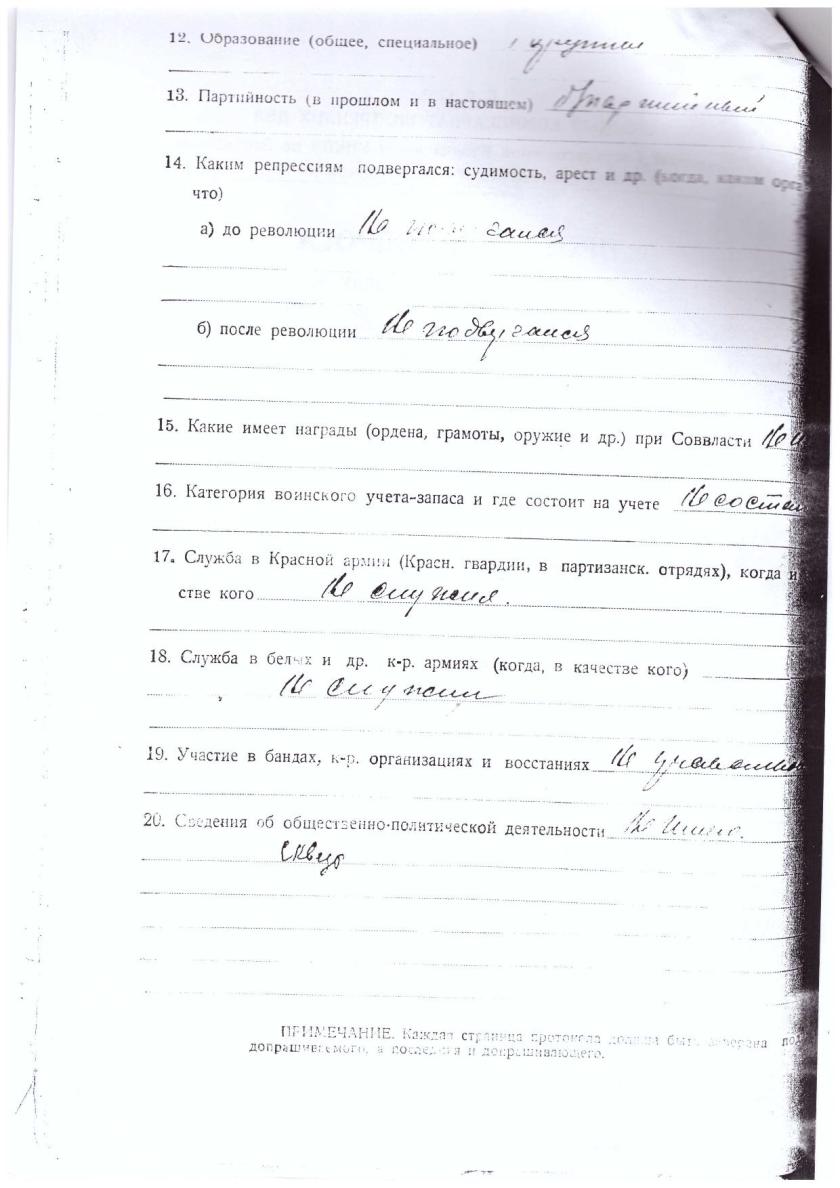 12. Образование (общее, специальное)
13. Партийность (в прошлом и в настоящем)
14. Каким репрессиям подвергался: судимость, арест и др. (когда, каким орга
что)
а) до революции Не
б) после революции Не подвергался
15. Какие имеет награды (ордена, грамоты, оружие и др.) при Соввласти Не
16. Категория воинского учета-запаса и где состоит на учете Не состои
17. Служба в Красной армии (Красн. гвардии, в партизанск. отрядях), когда и
стве кого Не служил.
18. Служба в белых и др. к-р. армиях (когда, в качестве кого)
Не служил
19. Участие в бандах, к-р. организациях и восстаниях Не
20. Сведения об общественно-политической деятельности Не
ПРИМЕЧАНИЕ. Каждая страница протокола должна быть заверена под
допрашиваемого, а последняя и допрашивающего.